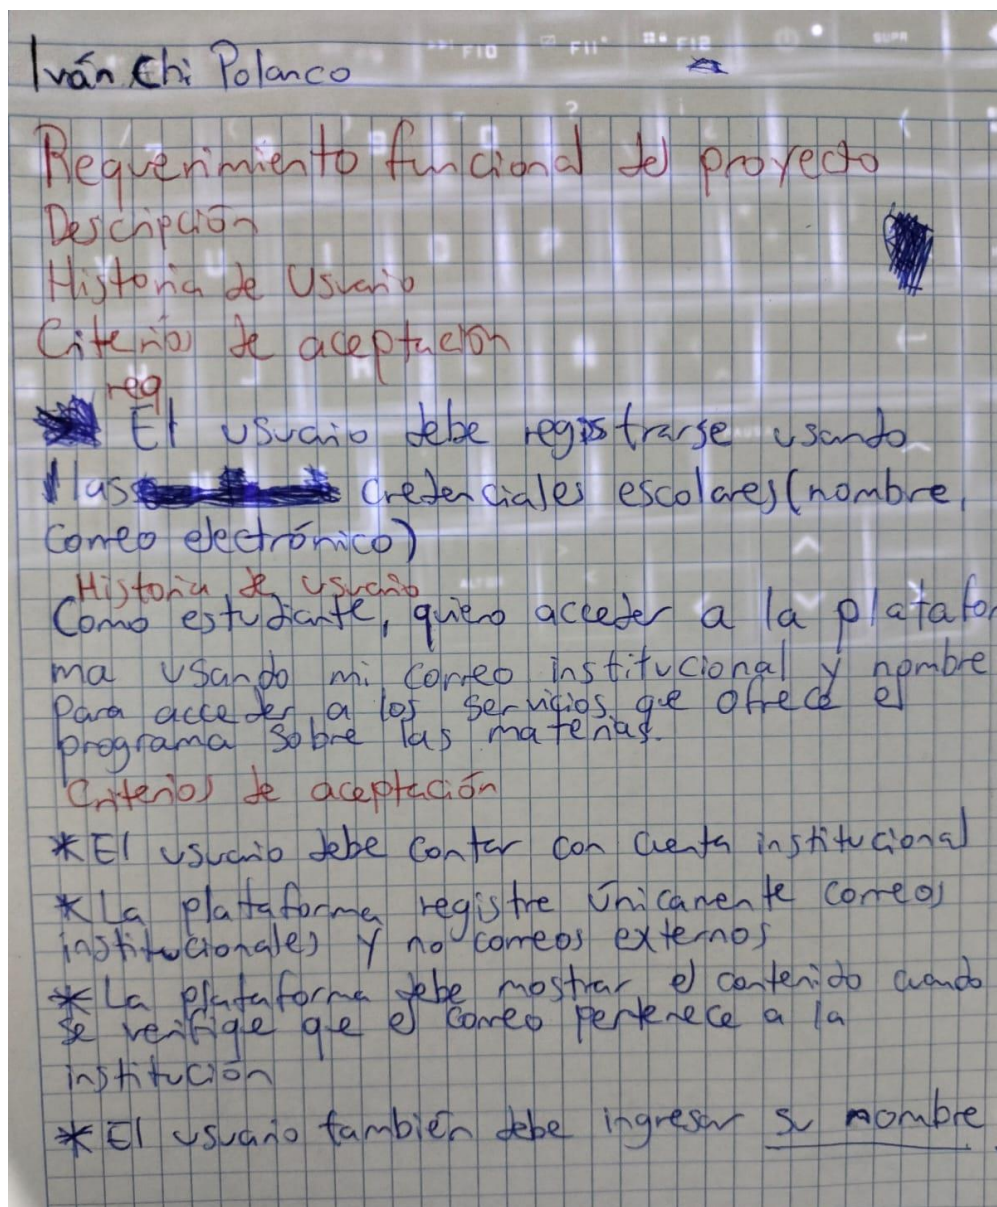 Iván Chi Polanco
Requerimiento funcional del proyecto
Descripción
Historia de Usuario
Criterios de aceptación
req
El usuario debe registrarse usando
las credenciales escolares (nombre,
correo electrónico)
Historia de usuario
Como estudiante, quiero acceder a la platafor
ma usando mi correo institucional y nombre
para acceder a los servicios que ofrece el
programa sobre las materias.
Criterios de aceptación
* El usuario debe contar con cuenta institucional
* La plataforma registre únicamente correos
institucionales y no correos externos
* La plataforma debe mostrar el contenido cuando
se verifige que el correo pertenece a la
institución
* El usuario también debe ingresar su nombre.